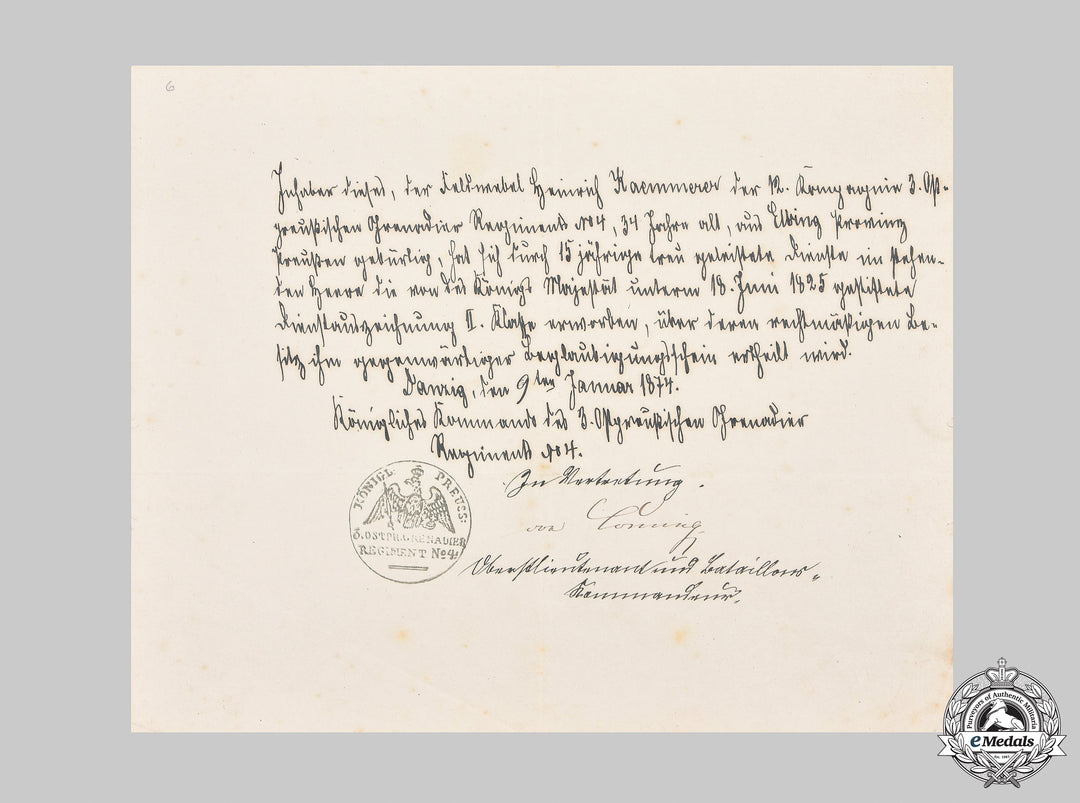 6
Inhaber dieses, der Feldwebel Heinrich Kaemmerer der 12. Kompagnie 3. Ost-
preußischen Grenadier Regiments No 4, 34 Jahre alt, aus Elbing Provinz
Preußen gebürtig, hat sich durch 15 jährige treu geleistete Dienste im stehen-
den Heere die von des Königs Majestät unterm 18. Juni 1825 gestiftete
Dienstauszeichnung II. Klasse erworben, über deren rechtmäßigen Be-
sitz ihm gegenwärtiger Beglaubigungsschein ertheilt wird.
Danzig, den 9ten Januar 1874.
Königliches Kommando des 3. Ostpreußischen Grenadier
Regiments No 4.
In Vertretung.
KÖNIGL: PREUSS:
3. OSTPR. GRENADIER
REGIMENT No 4.
Oberstlieutenant und Bataillons-
Kommandeur.
Purveyors of Authentic Militaria
eMedals